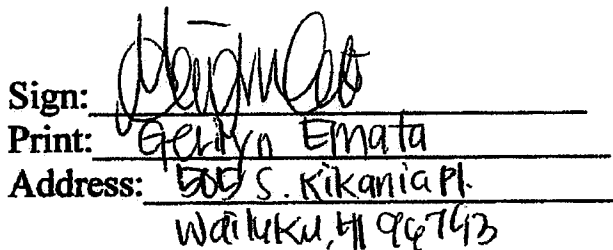 Sign:
Print: Gerilyn Emata
Address: 505 S. Kikania Pl.
Wailuku, HI 96793